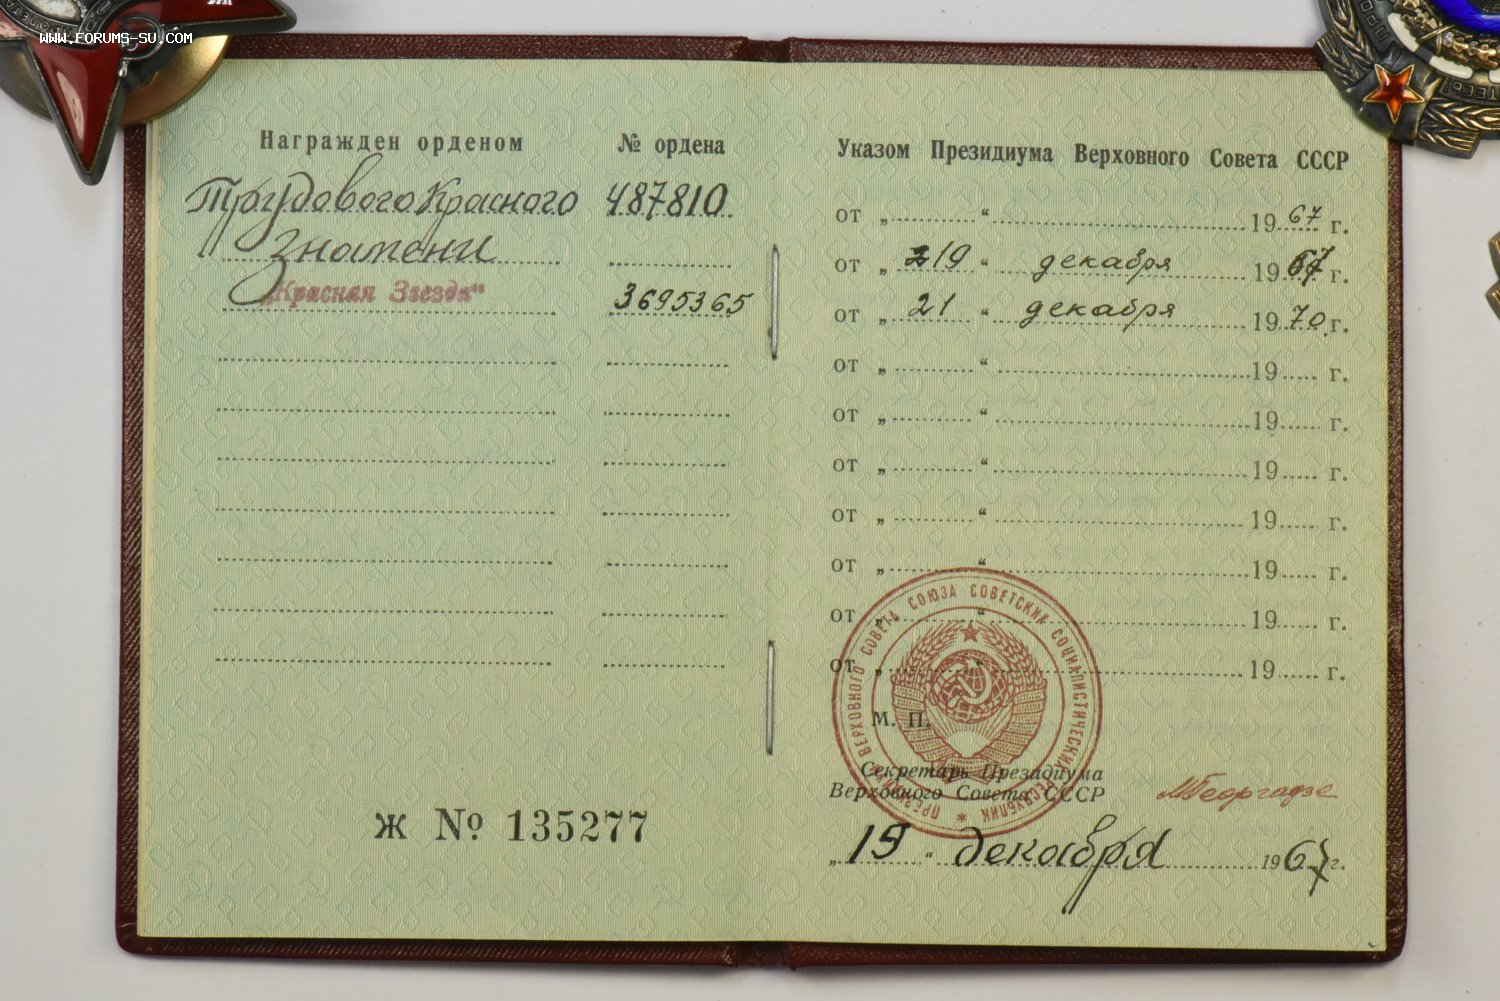 WWW.FORUMS-SU.COM
Награжден орденом № ордена
Трудового Красного 487810
Знамени
„Красная Звезда“ 3695365
Ж № 135277
Указом Президиума Верховного Совета СССР
от „ “ 19 67 г.
от „ 19 “ декабря 19 67 г.
от „ 21 “ декабря 19 70 г.
от „ “ 19 г.
от „ “ 19 г.
от „ “ 19 г.
от „ “ 19 г.
от „ “ 19 г.
от „ “ 19 г.
от „ “ 19 г.
ПРЕЗИДИУМ ВЕРХОВНОГО СОВЕТА СОЮЗА СОВЕТСКИХ СОЦИАЛИСТИЧЕСКИХ РЕСПУБЛИК *
М. П.
Секретарь Президиума
Верховного Совета СССР МГеоргадзе
„ 19 “ декабря 1967 г.